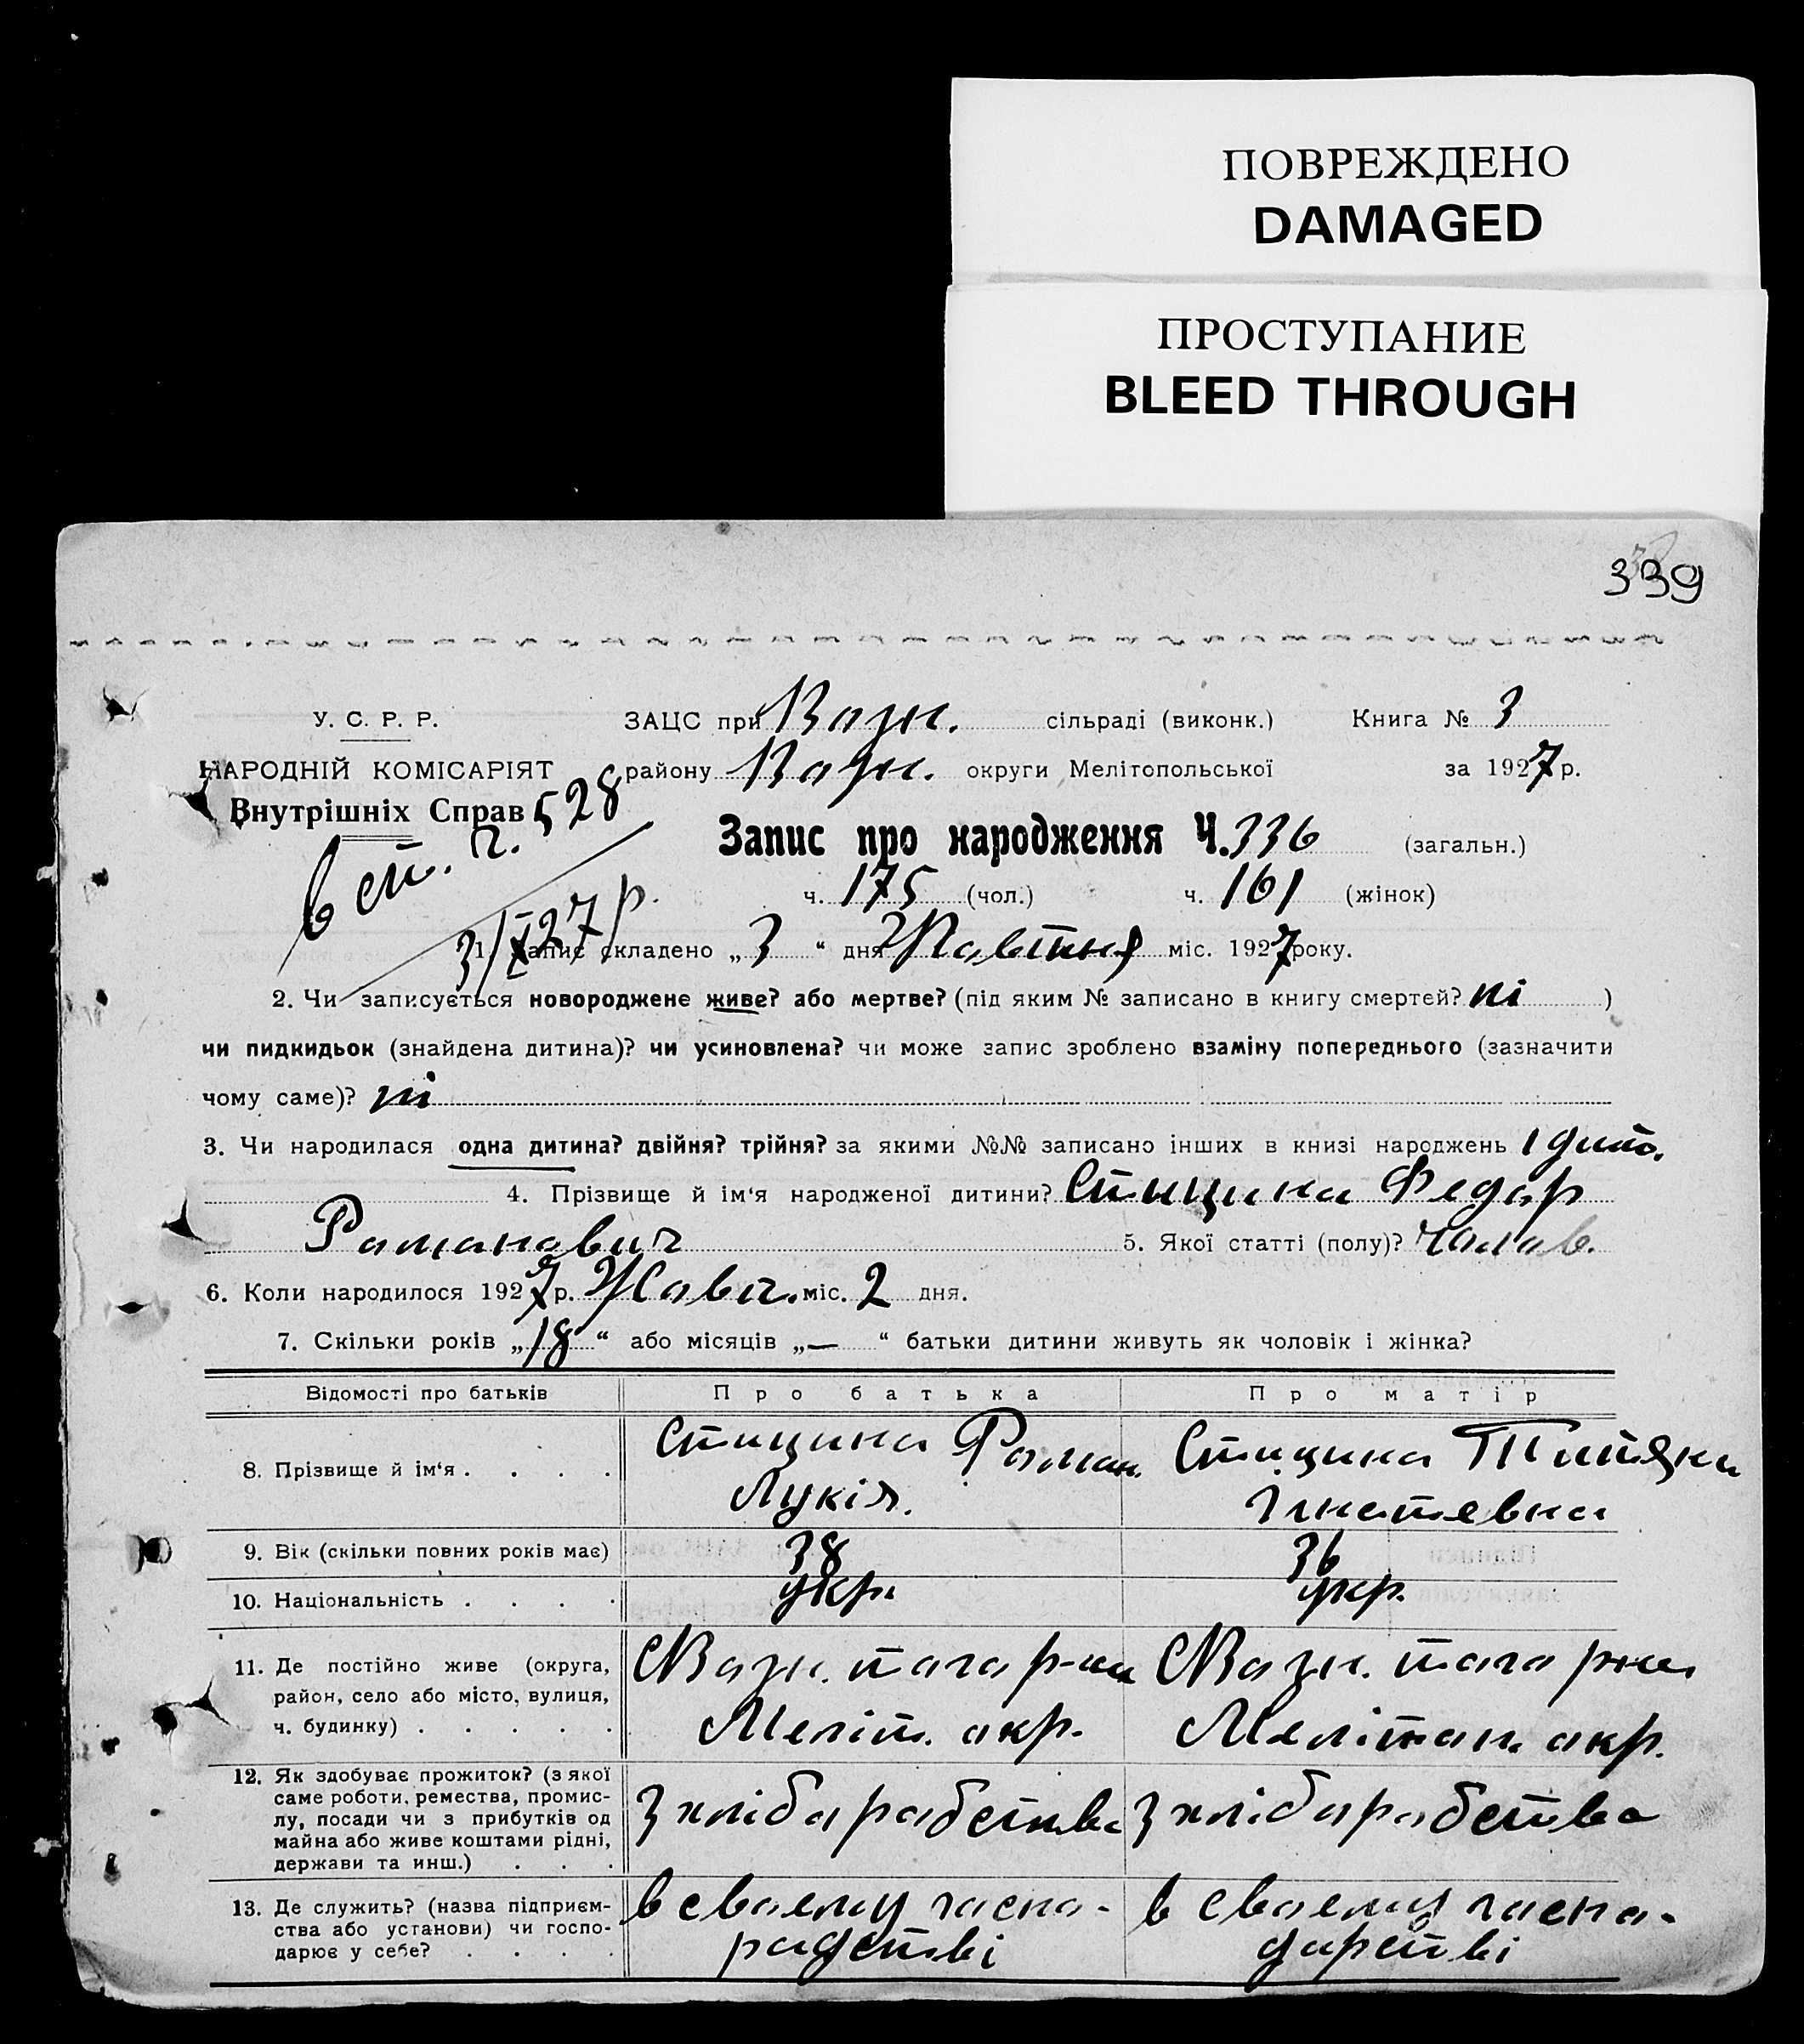 ПОВРЕЖДЕНО
DAMAGED
ПРОСТУПАНИЕ
BLEED THROUGH
339
У. С. Р. Р. ЗАЦС при Возн. сільраді (виконк.) Книга № 3
НАРОДНІЙ КОМІСАРІЯТ району Возн. округи Мелітопольської за 1927 р.
Внутрішніх Справ 528
Запис про народження Ч. 336 (загальн.)
ч. 175 (чол.) ч. 161 (жінок)
3/X 27 р.
1. Запис складено „3“ дня Жовтня міс. 1927 року.
2. Чи записується новороджене живе? або мертве? (під яким № записано в книгу смертей? ні )
чи пидкидьок (знайдена дитина)? чи усиновлена? чи може запис зроблено взаміну попереднього (зазначити
чому саме)? ні
3. Чи народилася одна дитина? двійня? трійня? за якими №№ записано інших в книзі народжень 1 дит.
4. Прізвище й ім‘я народженої дитини? Стицина Федор
Романович 5. Якої статті (полу)? Чолов.
6. Коли народилося 1927 р. Жовт. міс. 2 дня.
7. Скільки років „18“ або місяців „—“ батьки дитини живуть як чоловік і жінка?
Відомості про батьків Про батька Про матір
8. Прізвище й ім‘я . . . . Стицина Роман Стицина Титяна
Лукія. Ігнатевна
9. Вік (скільки повних років має) 38 36
10. Національність . . . . укр. укр.
11. Де постійно живе (округа, Возн. того р-ни Возн. того рни
район, село або місто, вулиця,
ч. будинку) . . . . . Меліт. окр. Мелітоп. окр.
12. Як здобуває прожиток? (з якої
саме роботи, ремества, промис-
лу, посади чи з прибутків од З хліборобства З хліборобства
майна або живе коштами рідні,
держави та инш.) . . .
13. Де служить? (назва підприєм- в своему госпо- в своему госпо-
ства або установи) чи госпо-
дарює у себе? . . . . радстві дарстві